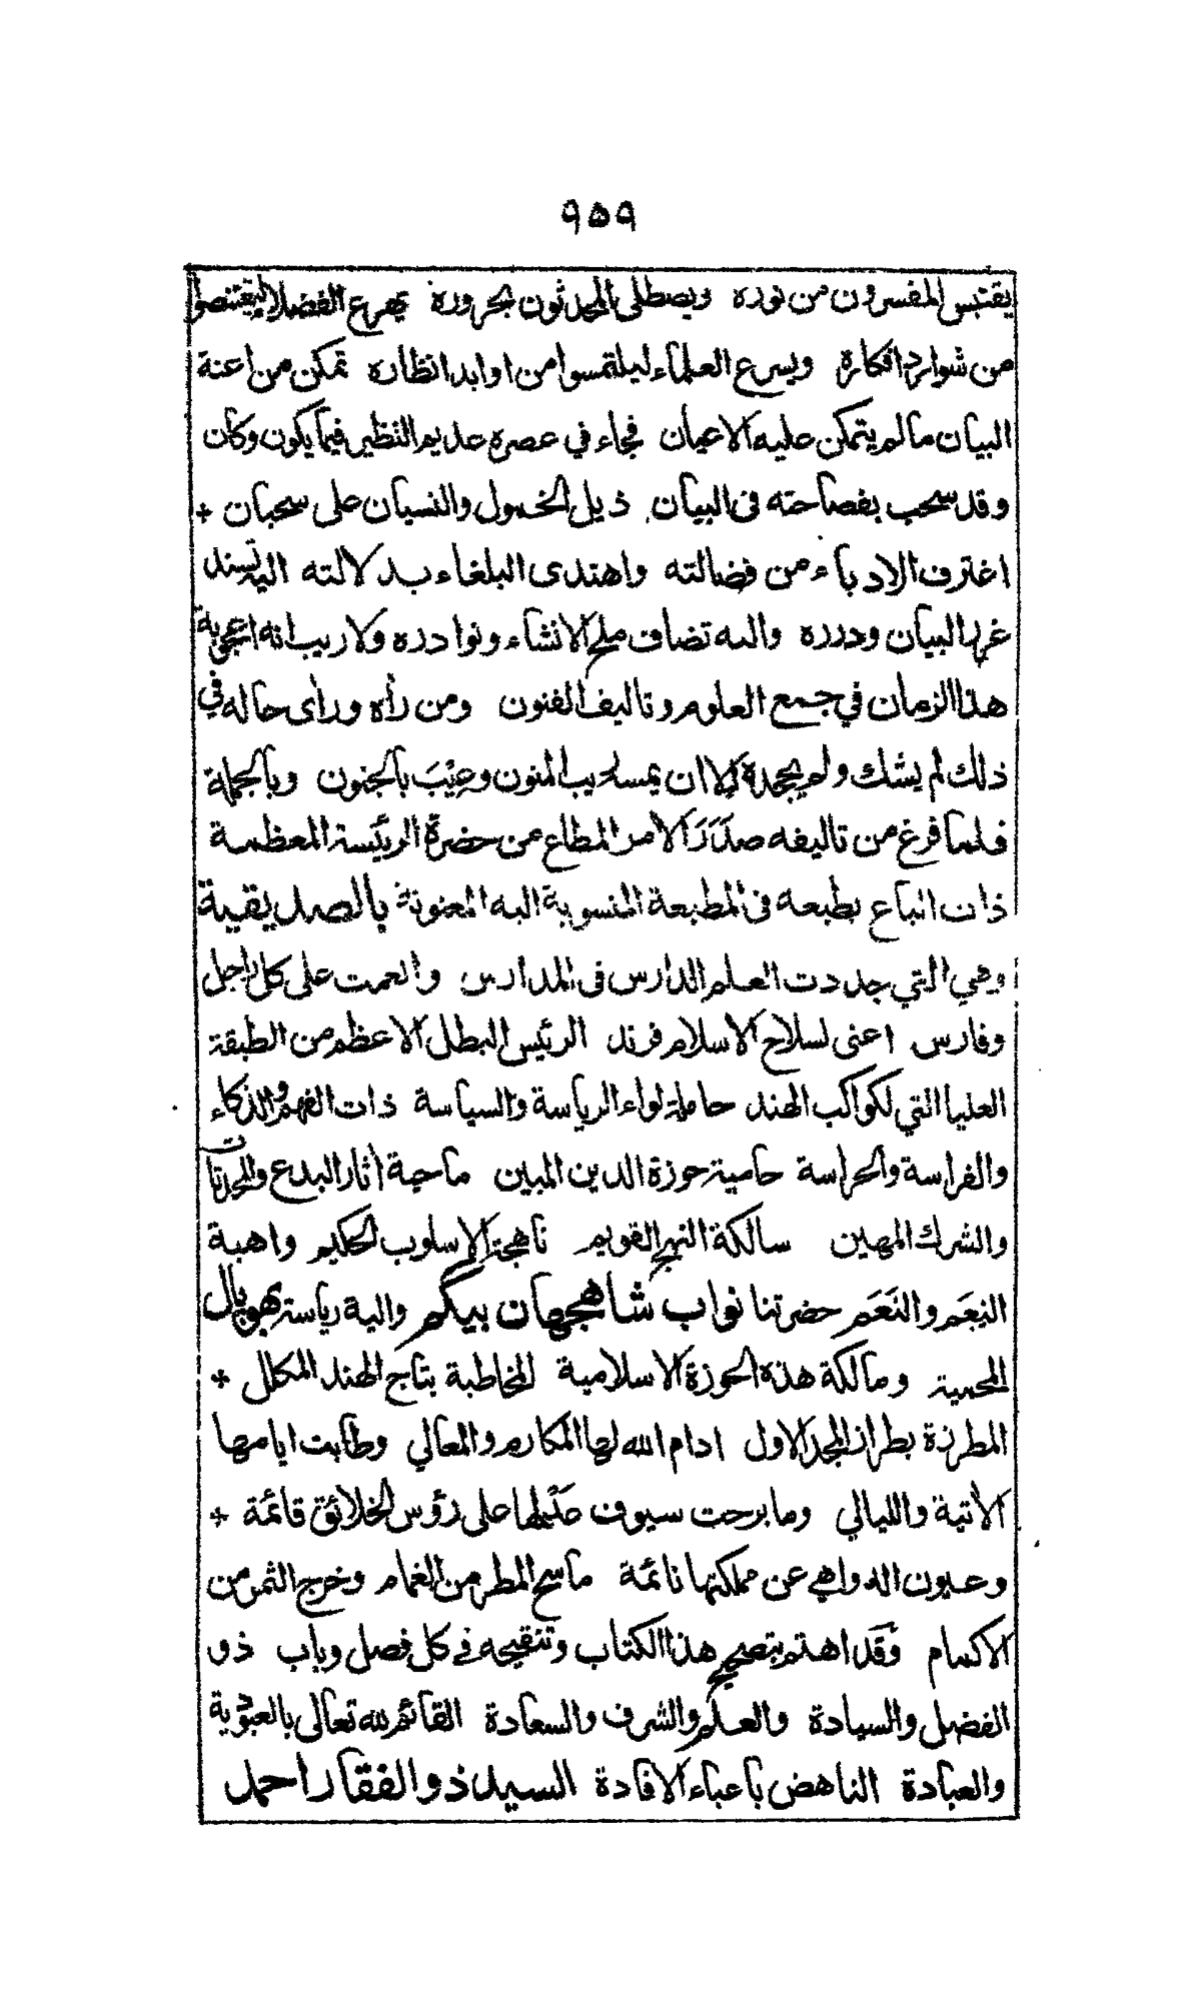 ٩٥٩
يقتبس المفسرون من نوره ويصطلى المحدثون بحروره يهرع الفضلاء ليغتنصوا
من شوارد افكاره ويسرع العلماء ليلتمسوا من اوابد انظاره تمكن من اعنة
البيان مالم يتمكن عليه الاعيان فجاء في عصره عديم النظير فيما يكون وكان
وقد سحب بفصاحته فى البيان ذيل الخمول والنسيان على سحبان +
اغترف الادباء من فضالته واهتدى البلغاء بدلالته اليه تسند
غرر البيان ودرره واليه تضاف ملح الانشاء ونوادره ولا ريب انه اعجوبة
هذا الزمان في جمع العلوم وتاليف الفنون ومن رأه ورأى حاله في
ذلك لم يشك ولم يجحده إلا ان يمسه ريب المنون وعِيْبَ بالجنون وبالجملة
فلما فرغ من تاليفه صَدَرَ الامر المطاع من حضرة الرئيسة المعظمة
ذات اتباع بطبعه فى المطبعة المنسوبة اليه المعنونة بالصديقية
وهي التي جددت العلم الدارس فى المدارس وانعمت على كل راجل
وفارس اعنى لسلاح الاسلام فرند الرئيس البطل الاعظم من الطبقة
العليا التي لكواكب الهند حاملة لواء الرياسة والسياسة ذات الفهم والذكاء
والفراسة والحراسة حامية حوزة الدين المبين ماحية أثار البدع والمحدثات
والشرك المهين سالكة النهج القويم ناهجة الاسلوب الحكيم واهبة
النِعَم والنَعَم حضرتنا نواب شاهجهان بيگم والية رياسة بهوپال
المحمية ومالكة هذه الحوزة الاسلامية المخاطبة بتاج الهند المكلل +
المطرزة بطراز المجد الاول ادام الله لها المكارم والمعالي وطابت ايامها
الأتية والليالي وما برحت سيوف عَدْلِها على رؤس الخلائق قائمة +
وعيون الدواهي عن مملكتها نائمة ما سح المطر من الغمام وخرج الثمر من
الاكمام وقد اهتم بتصحيح هذا الكتاب وتنقيحه في كل فصل وباب ذو
الفضل والسيادة والعلم والشرف والسعادة القائم لله تعالى بالعبودية
والعبادة الناهض باعباء الافادة السيد ذو الفقار احمد